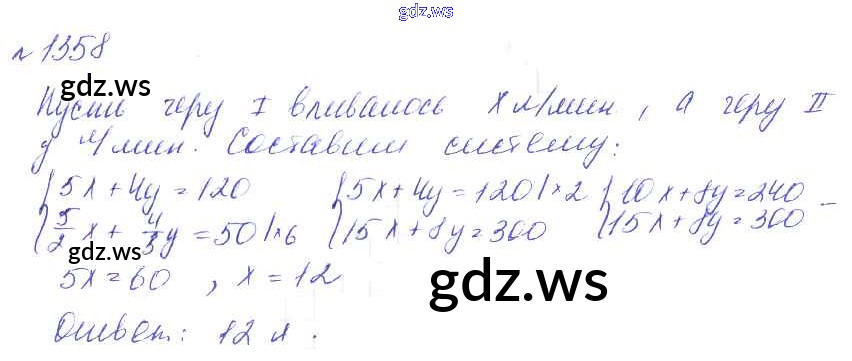 gdz.ws
№ 1358
gdz.ws
Пусть черу I вливалось x л/мин, а черу II
y л/мин. Составим систему:
{5x+4y=120 {5x+4y=120|×2 {10x+8y=240 –
{5/2x+4/3y=50|×6 {15x+8y=300 {15x+8y=300
gdz.ws
5x=60, x=12
gdz.ws
Ответ: 12 л.